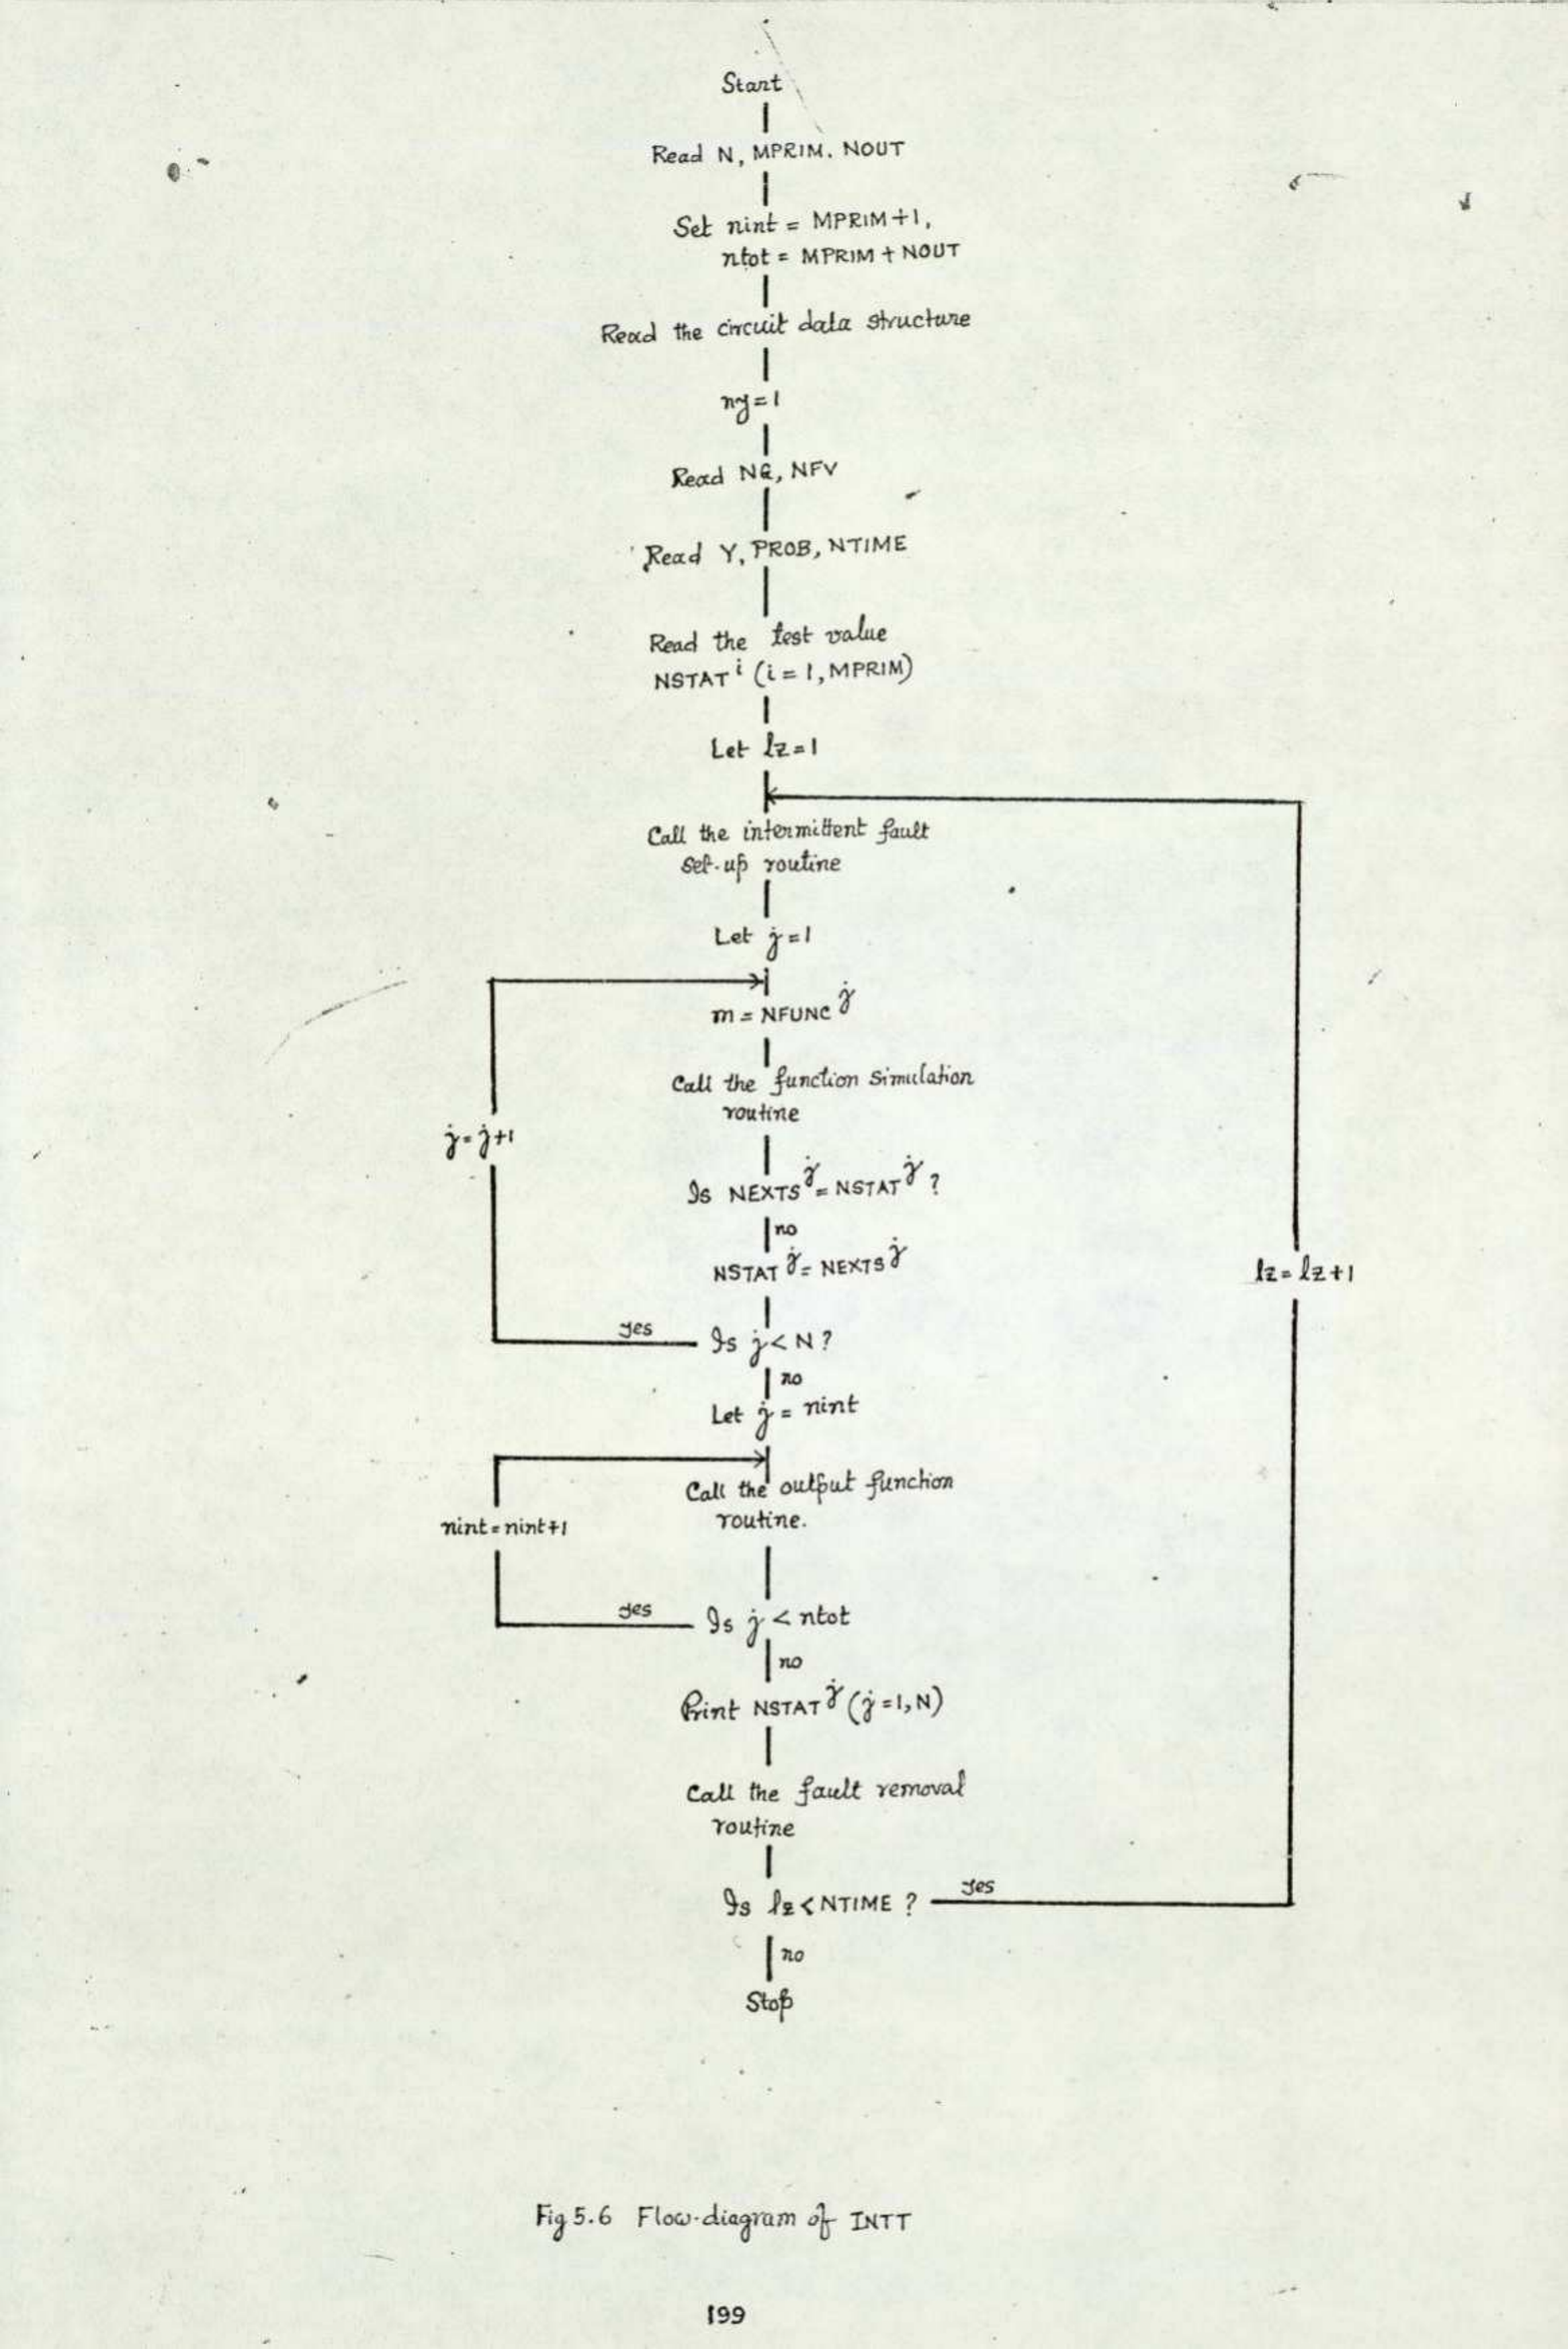 Start
Read N, MPRIM. NOUT
Set nint = MPRIM+1,
ntot = MPRIM + NOUT
Read the circuit data structure
ny=1
Read NG, NFV
Read Y, PROB, NTIME
Read the test value
NSTAT i (i = 1, MPRIM)
Let lz=1
Call the intermittent fault
set-up routine
Let j=1
m = NFUNC j
Call the function simulation
routine
j=j+1
Is NEXTS j = NSTAT j ?
no
NSTAT j = NEXTS j
lz=lz+1
yes
Is j < N ?
no
Let j = nint
Call the output function
routine.
nint=nint+1
yes
Is j < ntot
no
Print NSTAT j (j=1,N)
Call the fault removal
routine
Is lz < NTIME ?
yes
no
Stop
Fig 5.6 Flow-diagram of INTT
199